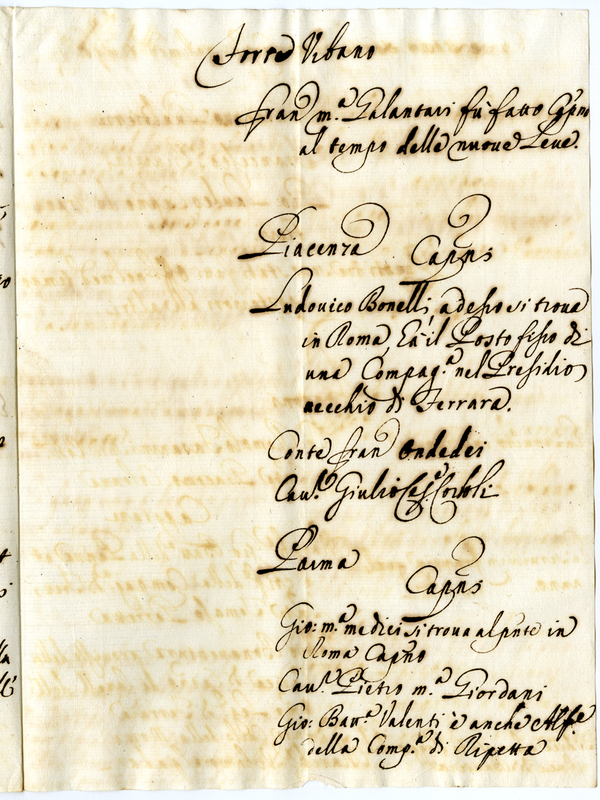 Forte Urbano
Fran.º m.ª Galantari fù fatto Cap.no
al tempo delle nuove Leve.
Piacenza Cap.ns
Ludovico Bonelli, adesso si trova
in Roma, Ea' il Posto fisso di
una Compag.ª nel Presidio
vecchio di Ferrara.
Conte fran.º Ondedei
Cau.r Giulio Ces.e
Parma
Cap.ns
Gio: m.ª medici si trova al pnte in
Roma Cap.no
Cau.r Pietro m.ª Giordani
Gio: Batt.ª Valenti è anche Alf.e
della Comp.ª di Ripetta